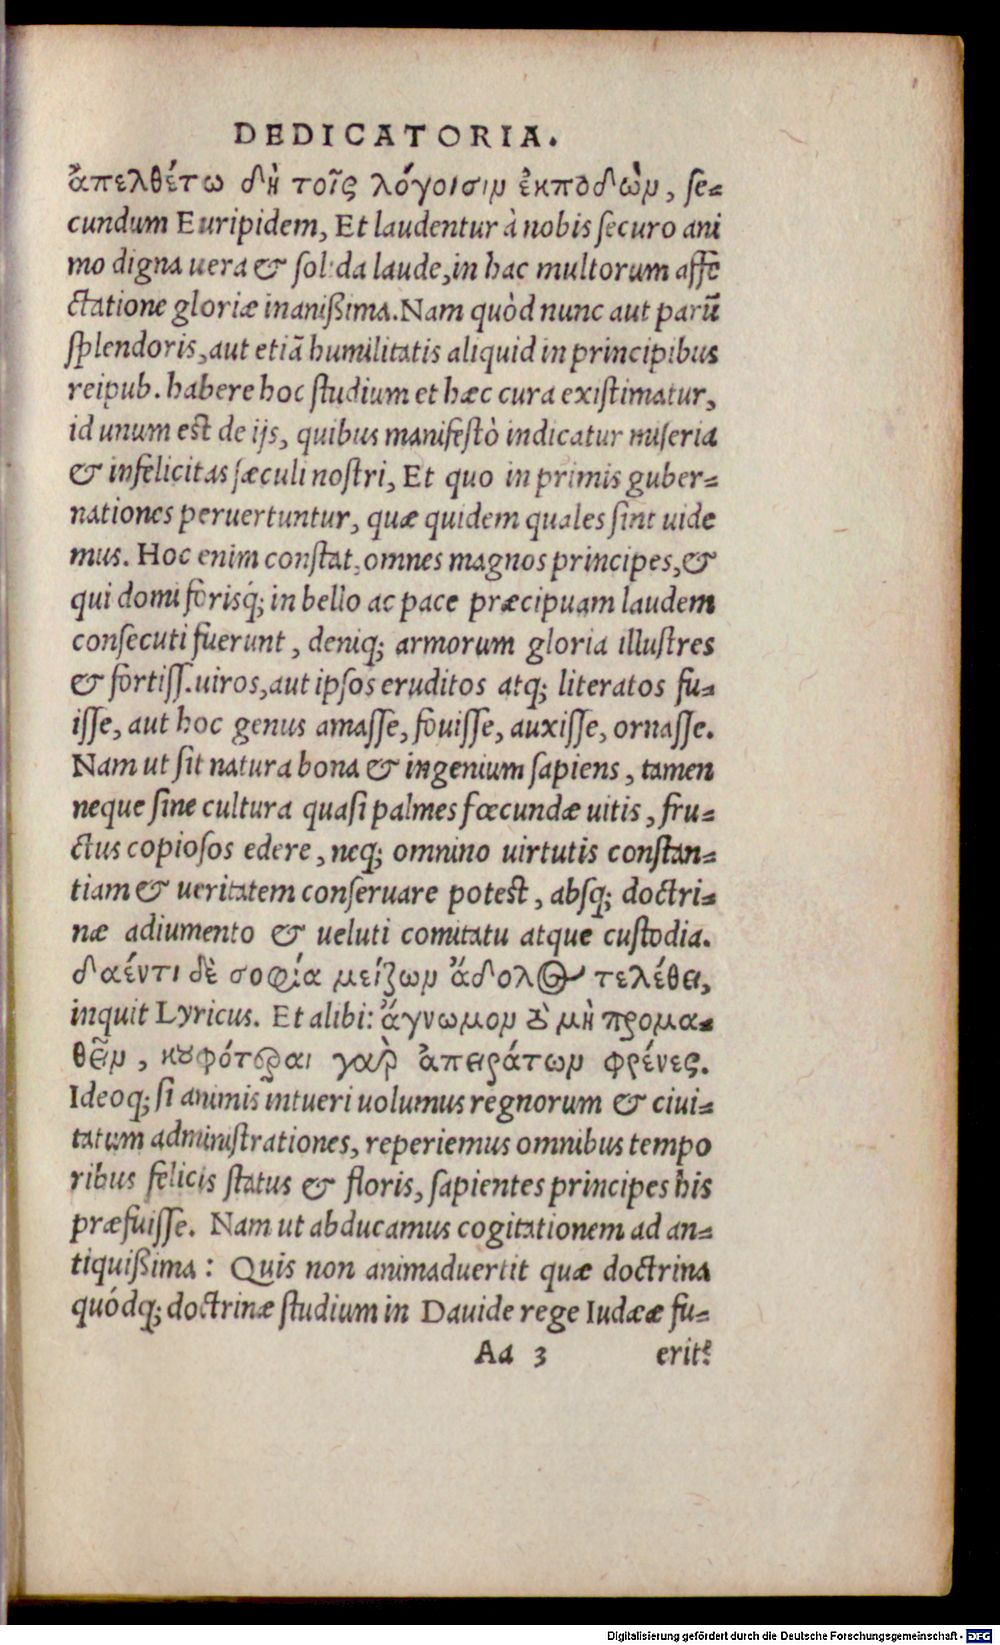 DEDICATORIA.
ἀπελθέτω δὴ τοῖς λόγοισιν ἐκποδὼν, se-
cundum Euripidem, Et laudentur à nobis securo ani
mo digna uera & solida laude, in hac multorum affe
ctatione gloriæ inanißima. Nam quòd nunc aut parũ
splendoris, aut etiã humilitatis aliquid in principibus
reipub. habere hoc studium et hæc cura existimatur,
id unum est de ijs, quibus manifestò indicatur miseria
& infelicitas sæculi nostri, Et quo in primis guber-
nationes peruertuntur, quæ quidem quales sint uide
mus. Hoc enim constat, omnes magnos principes, &
qui domi forisq́; in bello ac pace præcipuam laudem
consecuti fuerunt, deniq; armorum gloria illustres
& fortiss. uiros, aut ipsos eruditos atq; literatos fu-
isse, aut hoc genus amasse, fouisse, auxisse, ornasse.
Nam ut sit natura bona & ingenium sapiens, tamen
neque sine cultura quasi palmes fœcundæ uitis, fru-
ctus copiosos edere, neq; omnino uirtutis constan-
tiam & ueritatem conseruare potest, absq; doctri-
næ adiumento & ueluti comitatu atque custodia.
δαέντι δὲ σοφία μείζων ἄδολος τελέθει,
inquit Lyricus. Et alibi: ἄγνωμον δὲ τὸ μὴ προμα-
θεῖν, κουφότεραι γὰρ ἀπειράτων φρένες.
Ideoq; si animis intueri uolumus regnorum & ciui-
tatum administrationes, reperiemus omnibus tempo
ribus felicis status & floris, sapientes principes his
præfuisse. Nam ut abducamus cogitationem ad an-
tiquißima: Quis non animaduertit quæ doctrina
quódq; doctrinæ studium in Dauide rege Iudææ fu-
Aa 3 erit?
Digitalisierung gefördert durch die Deutsche Forschungsgemeinschaft - DFG